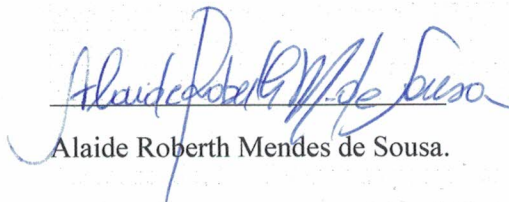 Alaide Roberth M. de Sousa
Alaide Roberth Mendes de Sousa.